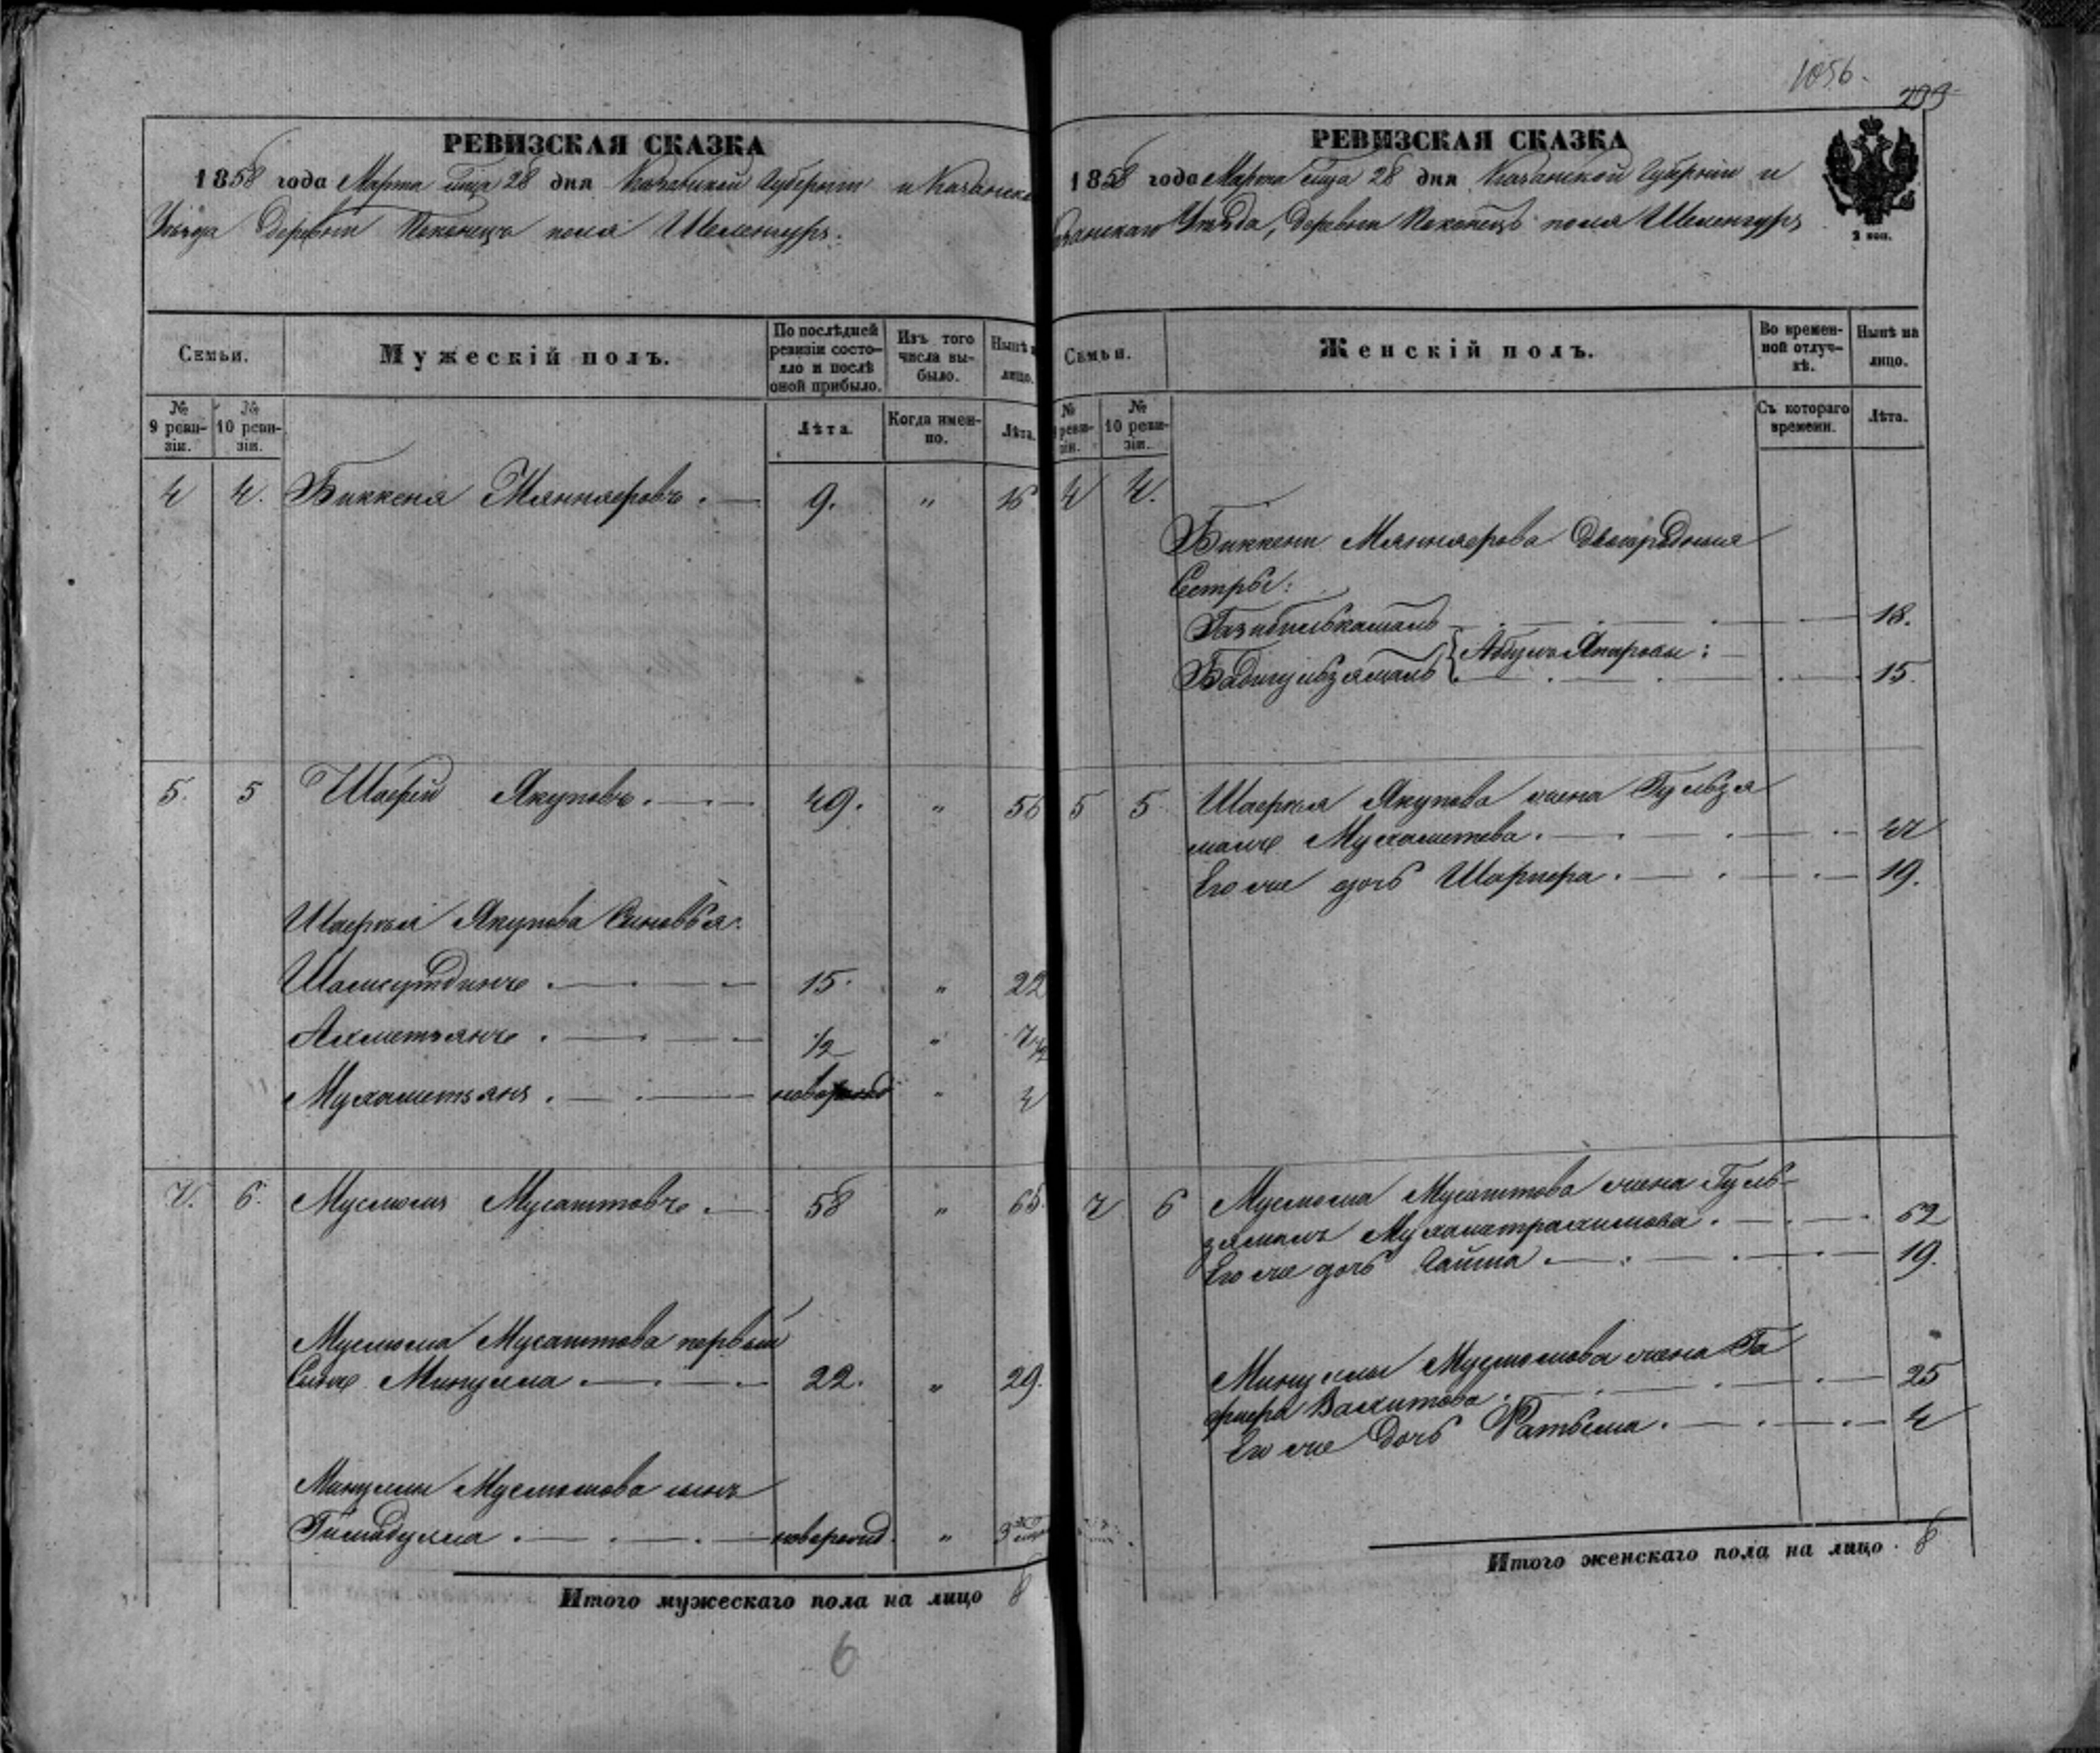 1056.
233
РЕВИЗСКАЯ СКАЗКА
1858 года Марта м̃ца 28 дня Казанской Губернии и Казанскаго
Уѣзда Деревни Поконецъ поля Шеленгуръ:
Семьи.
Мужескій полъ.
По послѣдней ревизіи состояло и послѣ оной прибыло.
Изъ того числа выбыло.
Нынѣ
лицо.
№ 9 ревизіи.
№ 10 ревизіи.
Лѣта.
Когда именно.
Лѣта.
4 4. Биккеня Мяннаеровъ. 9. " 16
5. 5 Шафѣй Якуповъ. 49. " 56
Шафѣя Якупова Сыновья:
Шамсутдинъ. 15. " 22
Ахметзянъ. 1/2 " 7 1/2
Мухаметзянъ. новорожд " 4
7. 6. Муслюмъ Мусаитовъ. 58 " 65.
Муслюма Мусаитова первый
Сынъ Минулла. 22. " 29.
Минуллы Муслюмова сынъ
Гимадулла. новорожд. " 3
Итого мужескаго пола на лицо 8
6
РЕВИЗСКАЯ СКАЗКА
1858 года Марта м̃ца 28 дня Казанской Губерніи и
Казанскаго Уѣзда, Деревни Поконецъ поля Шеленгуръ
2 коп.
Семьи.
Женскій полъ.
Во временной отлучкѣ.
Нынѣ на лицо.
№ ревизіи.
№ 10 ревизіи.
Съ котораго времени.
Лѣта.
4 4.
Биккени Мяннаерова Двоюродныя
Сестры:
Газибилькамалъ 18.
Абдулъ Яппаровы:
Бадигульзямалъ 15.
5 5 Шафѣя Якупова жена Гульзя
малъ Мухаметова. 47
Его же дочь Шарифа. 19.
7 6 Муслюма Мусаитова жена Гуль-
зямалъ Мухаметрахимова. 62
Его же дочь Гайша. 19.
Минуллы Муслюмова жена Га
фифа Вахитова. 25
Его же дочь Фатыма. 4
Итого женскаго пола на лицо. 8